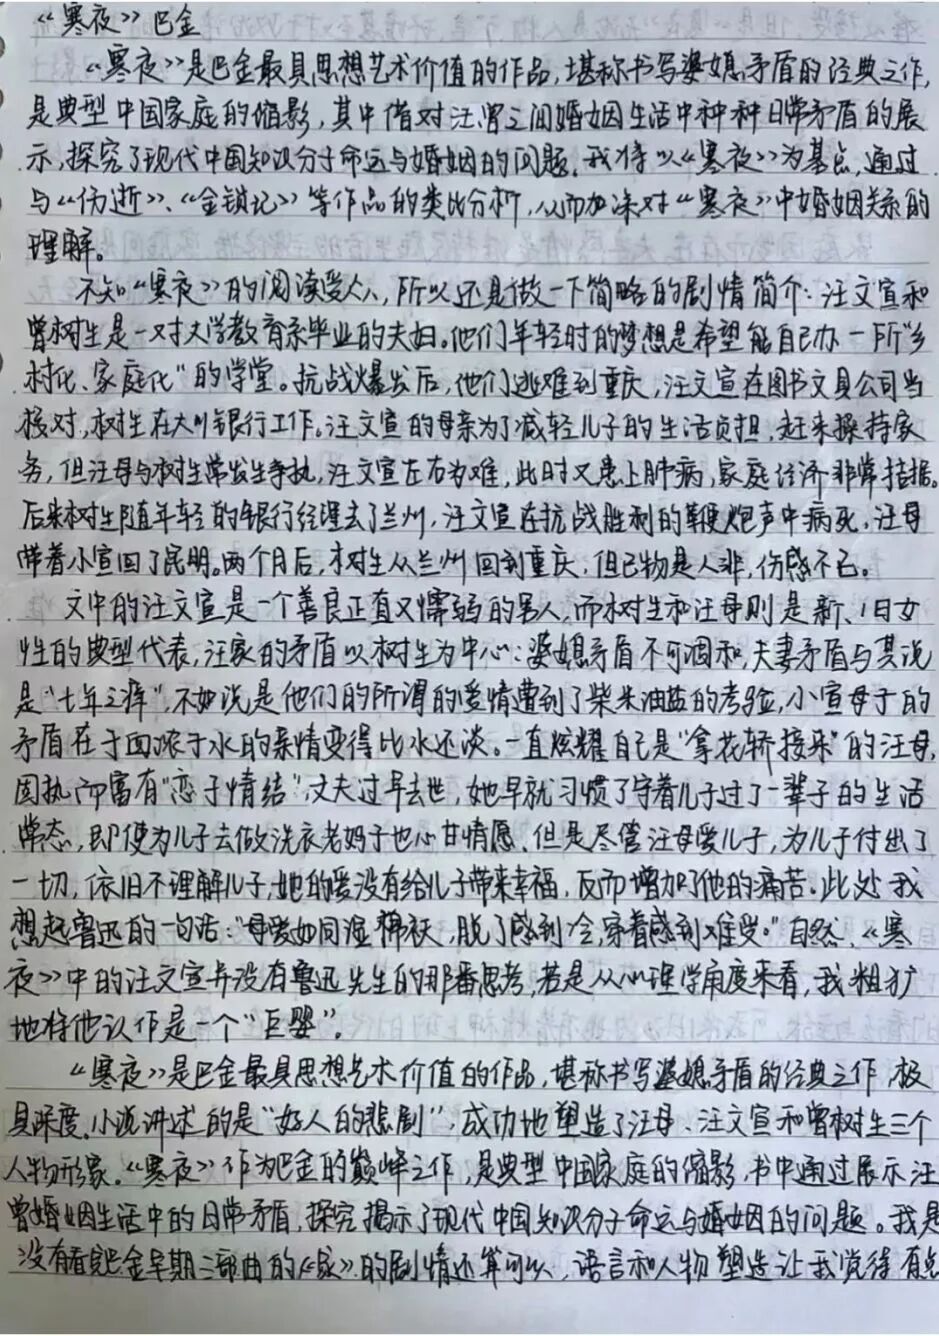 《寒夜》巴金
《寒夜》是巴金最具思想艺术价值的作品,堪称书写婆媳矛盾的经典之作,
是典型中国家庭的缩影,其中借对汪曾之间婚姻生活中种种日常矛盾的展
示,探究了现代中国知识分子命运与婚姻的问题。我将以《寒夜》为基点,通过
与《伤逝》、《金锁记》等作品的类比分析,从而加深对《寒夜》中婚姻关系的
理解。
不知《寒夜》的阅读受众,所以还是做一下简略的剧情简介:汪文宣和
曾树生是一对大学教育系毕业的夫妇。他们年轻时的梦想是希望能自己办一所"乡
村化、家庭化"的学堂。抗战爆发后,他们逃难到重庆,汪文宣在图书文具公司当
校对,树生在大川银行工作。汪文宣的母亲为了减轻儿子的生活负担,赶来操持家
务,但汪母与树生常发生争执,汪文宣左右为难,此时又患上肺病,家庭经济非常拮据。
后来树生随年轻的银行经理去了兰州,汪文宣在抗战胜利的鞭炮声中病死,汪母
带着小宣回了昆明。两个月后,树生从兰州回到重庆,但已物是人非,伤感不已。
文中的汪文宣是一个善良正直又懦弱的男人,而树生和汪母则是新、旧女
性的典型代表,汪家的矛盾以树生为中心:婆媳矛盾不可调和,夫妻矛盾与其说
是"七年之痒",不如说是他们的所谓的爱情遭到了柴米油盐的考验,小宣母子的
矛盾在于血浓于水的亲情变得比水还淡。一直炫耀自己是"拿花轿接来"的汪母,
固执而富有"恋子情结",丈夫过早去世,她早就习惯了守着儿子过了一辈子的生活
常态,即使为儿子去做洗衣老妈子也心甘情愿。但是尽管汪母爱儿子,为儿子付出了
一切,依旧不理解儿子,她的爱没有给儿子带来幸福,反而增加了他的痛苦。此处我
想起鲁迅的一句话:"母爱如同湿棉袄,脱了感到冷,穿着感到难受。"自然,《寒
夜》中的汪文宣并没有鲁迅先生的那番思考,若是从心理学角度来看,我粗犷
地将他认作是一个"巨婴"。
《寒夜》是巴金最具思想艺术价值的作品,堪称书写婆媳矛盾的经典之作,极
具深度。小说讲述的是"好人的悲剧",成功地塑造了汪母、汪文宣和曾树生三个
人物形象。《寒夜》作为巴金的巅峰之作,是典型中国家庭的缩影,书中通过展示汪
曾婚姻生活中的日常矛盾,探究揭示了现代中国知识分子命运与婚姻的问题。我是
没有看完巴金早期三部曲的《家》的剧情还算可以,语言和人物塑造让我觉得有点